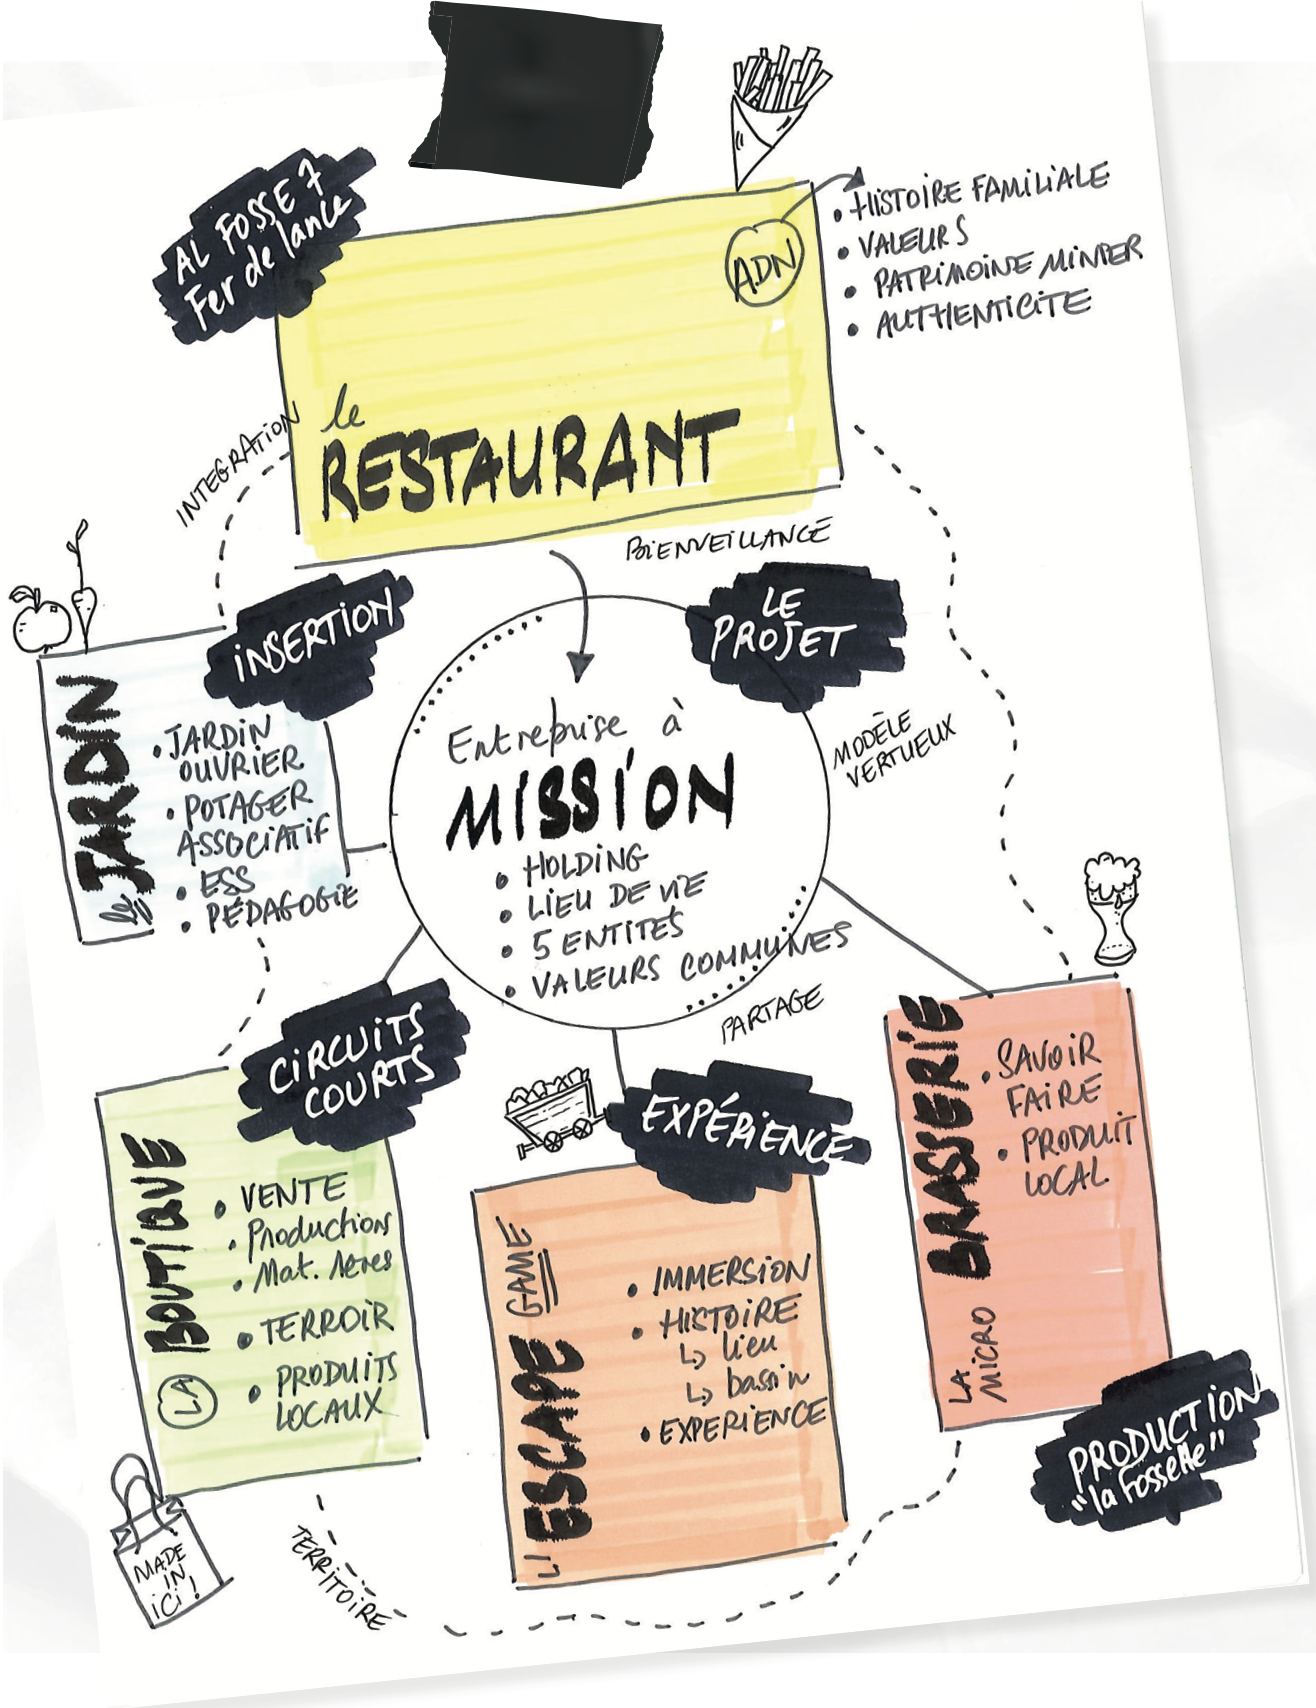 AL FOSSE 7
Fer de lance
ADN
• HISTOIRE FAMILIALE
• VALEURS
• PATRIMOINE MINIER
• AUTHENTICITE
le
RESTAURANT
INTEGRATION
BIENVEILLANCE
INSERTION
LE
PROJET
le JARDIN
• JARDIN
OUVRIER
• POTAGER
ASSOCIATIF
• ESS
• PÉDAGOGIE
Entreprise à
MISSION
• HOLDING
• LIEU DE VIE
• 5 ENTITÉS
• VALEURS COMMUNES
MODÈLE
VERTUEUX
PARTAGE
CIRCUITS
COURTS
LA BOUTIQUE
• VENTE
• Productions
• Mat. 1ères
• TERROIR
• PRODUITS
LOCAUX
MADE
IN
ICI !
EXPÉRIENCE
L' ESCAPE GAME
• IMMERSION
• HISTOIRE
↳ lieu
↳ bassin
• EXPERIENCE
LA
MICRO
BRASSERIE
• SAVOIR
FAIRE
• PRODUIT
LOCAL
PRODUCTION
"la Fossette"
TERRITOIRE